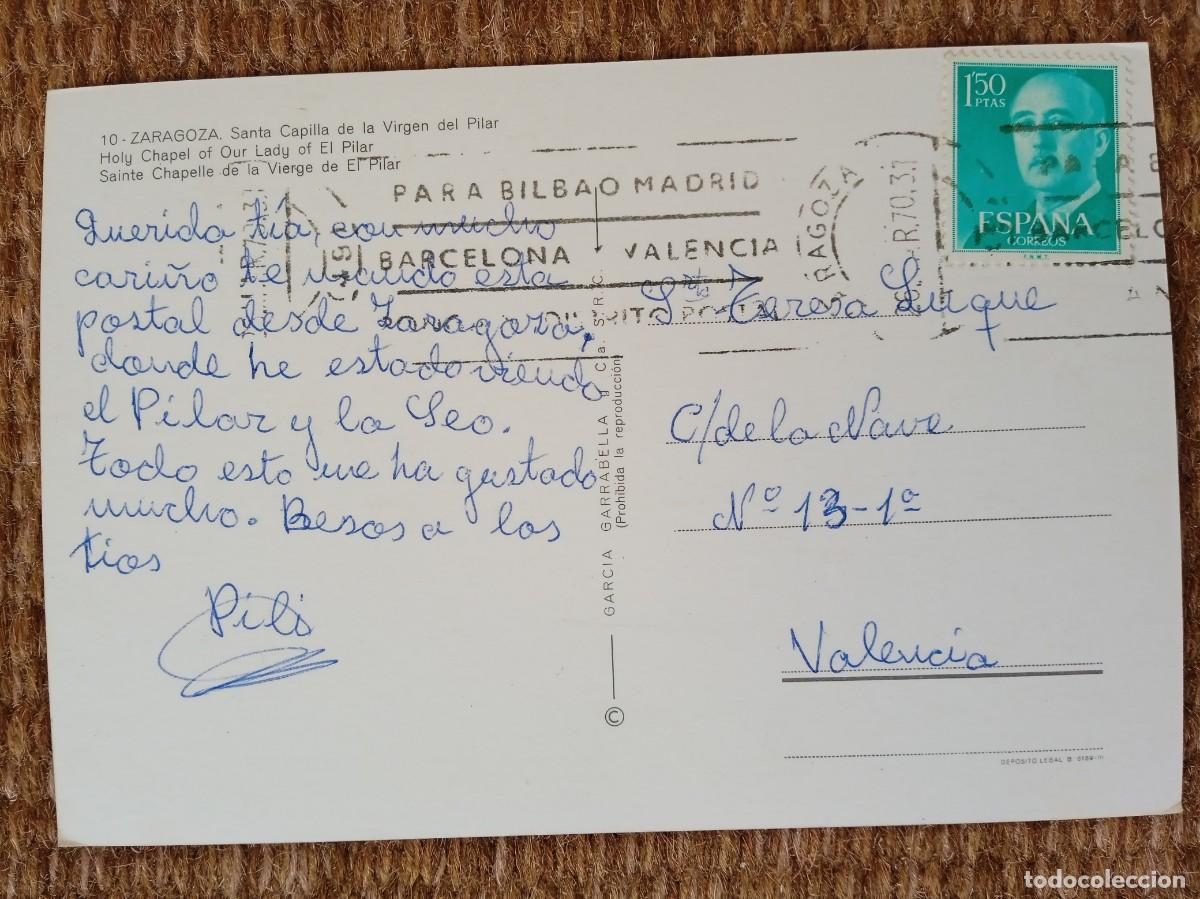 10 - ZARAGOZA. Santa Capilla de la Virgen del Pilar
Holy Chapel of Our Lady of El Pilar
Sainte Chapelle de la Vierge de El Pilar
Querida tía, con mucho
cariño te mando esta
postal desde Zaragoza,
donde he estado viendo
el Pilar y la Seo.
Todo esto me ha gustado
mucho. Besos a los
tios
Pili
PARA BILBAO MADRID
BARCELONA VALENCIA
GARCIA GARRABELLA y Cía. S.R.C.
(Prohibida la reproducción)
©
1'50
PTAS
ESPAÑA
CORREOS
F.N.M.T.
Srta Teresa Luque
C/ de la Nave
Nº 13-1º
Valencia
DEPOSITO LEGAL B. 6189-III
todocoleccion